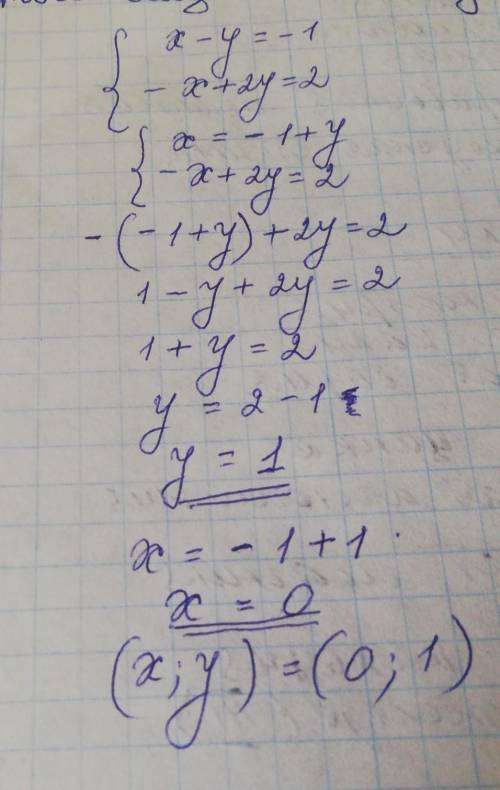 x - y = -1
- x + 2y = 2
x = -1 + y
-x + 2y = 2
-(-1+y) + 2y = 2
1 - y + 2y = 2
1 + y = 2
y = 2 - 1
y = 1
x = -1 + 1
x = 0
(x; y) = (0; 1)